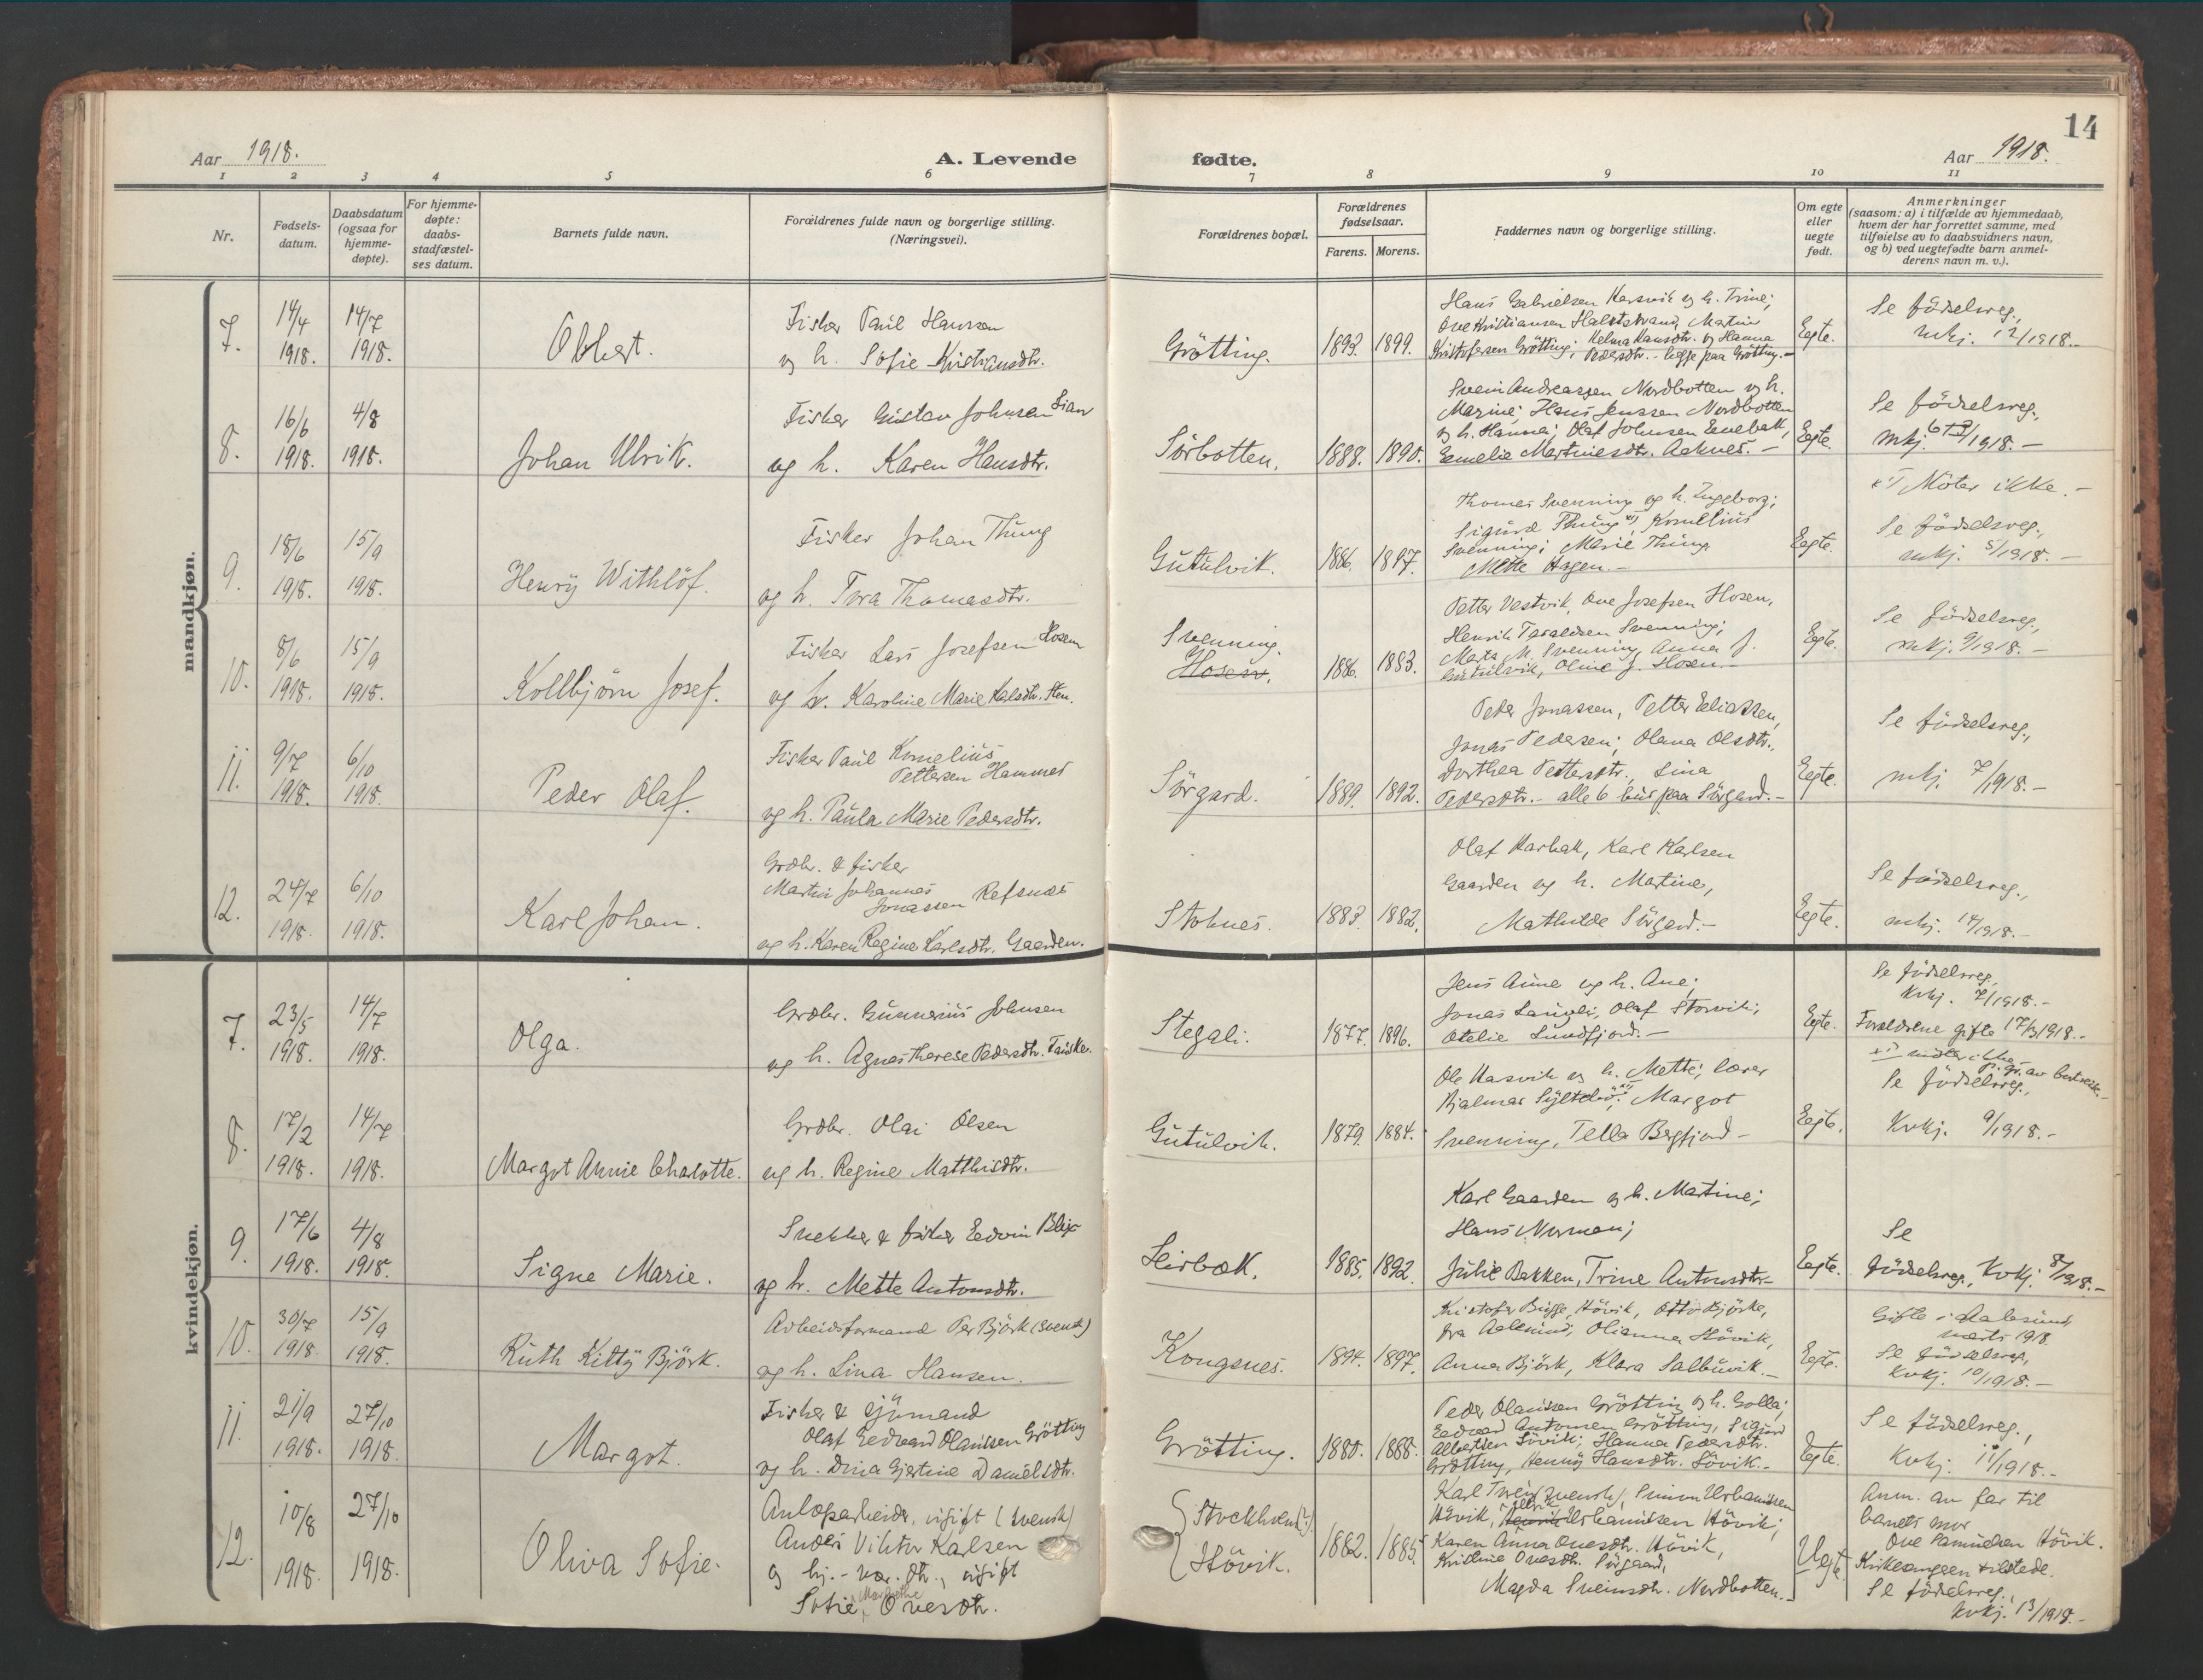 14
Aar 1918.
A. Levende fødte.
Aar 1918.
1 2 3 4 5 6 7 8 9 10 11
Nr.
Fødsels-
datum.
Daabsdatum
(ogsaa for
hjemme-
døpte).
For hjemme-
døpte:
daabs-
stadfæstel-
ses datum.
Barnets fulde navn.
Forældrenes fulde navn og borgerlige stilling.
(Næringsvei).
Forældrenes bopæl.
Forældrenes
fødselsaar.
Farens. Morens.
Faddernes navn og borgerlige stilling.
Om egte
eller
uegte
født.
Anmerkninger
(saasom: a) i tilfælde av hjemmedaab,
hvem der har forrettet samme, med
tilføielse av to daabsvidners navn,
og b) ved uegtefødte barn anmel-
derens navn m. v.).
mandkjøn.
7.
14/4 1918.
14/7 1918.
Obbert.
Fisker Paul Hanssen
og h. Sofie Kristiansdtr.
Grötting.
1893. 1899.
Hans Gabrielsen Karsvik og h. Trine;
Ove Kristiansen Halststrand, Martin
Kristofersen Grötting; Helma Hansdtr. og Hanna
Pedersdtr. - begge paa Grötting. -
Egte.
Se födselsreg.,
mkj. 12/1918. -
8.
16/6 1918.
4/8 1918.
Johan Ulrik.
Fisker Gustav Johnsen Lian
og h. Karen Hansdtr.
Sörbotten.
1888. 1890.
Svein Andreassen Nordbotten og h.
Marine; Hans Jenssen Nordbotten
og h. Hanna; Olaf Johnsen
Emelie Martinesdtr. Aaknes. -
Egte.
Se födselsreg.,
mkj. 6/1918. -
x) Möter ikke. -
9.
18/6 1918.
15/9 1918.
Henry Withlöf.
Fisker Johan Thung
og h. Tora Thomasdtr.
Gutulvik.
1886. 1897.
Thomas Svenning og h. Ingeborg;
Sigurd Thung x), Kornelius
Svenning; Marie Thung,
Mette Aagen. -
Egte.
Se födselsreg.,
mkj. 5/1918. -
10.
8/6 1918.
15/9 1918.
Kollbjörn Josef.
Fisker Lars Josefsen Hosen
og h. Karoline Marie Kalsdtr. Sten.
Svenning.
Hosen.
1886. 1883.
Petter Vestvik, Ove Josefsen Hosen,
Henrik Taraldsen Svenning;
Marta M. Svenning, Anna J.
Gutulvik, Oline J. Hosen. -
Egte.
Se födselsreg.,
mkj. 9/1918. -
11.
9/7 1918.
6/10 1918.
Peder Olaf.
Fisker Paul Kornelius
Pettersen Hammer
og h. Paula Marie Pedersdtr.
Sörgard.
1889. 1892.
Peder Jonassen, Petter Eliassen,
Jonas Pedersen; Olana Olsdtr.,
Dorthea Pettersdtr., Lina
Pedersdtr. - alle 6 bus paa Sörgard. -
Egte.
Se födselsreg.,
mkj. 7/1918. -
12.
24/7 1918.
6/10 1918.
Karl Johan.
Grdbr. & fisker
Martin Johannes
Jonassen Refsnes
og h. Karen Regine Karlsdtr. Gaarden.
Stoknes.
1883. 1882.
Olaf Harbak, Karl Karlsen
Gaarden og h. Martine,
Mathilde Sörgard. -
Egte.
Se födselsreg.,
mkj. 14/1918. -
kvindekjøn.
7.
23/5 1918.
14/7 1918.
Olga.
Grdbr. Gunnerius Johnsen
og h. Agnes Therese Pedersdtr. Fauske.
Stegali.
1877. 1896.
Jens Aune og h. Ane;
Jonas Langli, Olaf Storvik;
Otelie Sundfjord. -
Egte.
Se födselsreg.,
kvkj. 7/1918. -
Forældrene gifte 17/3 1918. -
8.
17/2 1918.
14/7 1918.
Margot Annie Charlotte.
Grdbr. Olai Olsen
og h. Regine Matthisdtr.
Gutulvik.
1879. 1884.
Ole Harsvik og h. Mette; lærer
Hjalmar x); Margot
Svenning, Tella Bergfjord -
Egte.
x) möter ikke
p. gr. av
Se födselsreg.,
kvkj. 9/1918. -
9.
17/6 1918.
4/8 1918.
Signe Marie.
Snekker & fisker Edvin Blix
og h. Mette Antonsdtr.
Leirbæk.
1885. 1892.
Karl Gaarden og h. Martine;
Hans Norman;
Julie Bakken, Trine Antonsdtr. -
Egte.
Se
födselsreg., kvkj. 8/1918. -
10.
30/7 1918.
15/9 1918.
Ruth Kitty Björk.
Arbeidsformand Per Björk (svensk)
og h. Lina Hansen.
Kongsnes.
1894. 1897.
Kristofer Bugge, Hövik, Otto Björke,
fra Aalesund, Olianna Hövik,
Anna Björk, Klara Salbuvik. -
Egte.
Gifte i Aalesund
marts 1918
Se födselsreg.,
kvkj. 10/1918. -
11.
21/9 1918.
27/10 1918.
Margot.
Fisker & sjömand
Olaf Edvard Olaussen Grötting
og h. Dina Gjertine Danielsdtr.
Grötting.
1880. 1888.
Peder Olaussen Grötting og h. Golla;
Edvard Antonsen Grötting, Sigurd
Albertsen Sövik; Hanna Pedersdtr.
Grötting, Jenny Hansdtr. Sövik. -
Egte.
Se födselsreg.,
kvkj. 11/1918. -
12.
10/8 1918.
27/10 1918.
Oliva Sofie.
Anlægsarbeider, ugift (svensk)
Anders Viktor Karlsen
og hj.-vær. dtr., ugift
Sofie Margrethe Ovesdtr.
Stockholm (?).
Hövik.
1882. 1885.
Karl (svensk), Simon Urbanussen
Hövik, Ulrik Urbanussen Hövik;
Karen Anna Ovesdtr. Hövik,
Kristine Ovesdtr. Sörgaard,
Magda Sveinsdtr. Nordbotten. -
Uegte.
Anm. av far til
barnets mor
Ove Samuelsen Hövik.
Kirkesangeren tilstede.
Se födselsreg.,
kvkj. 13/1918. -